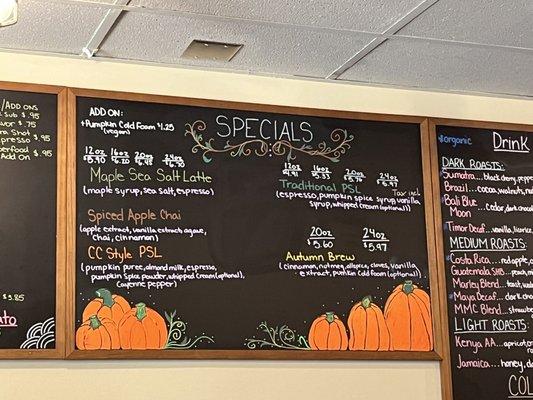 ADD ON:
+Pumpkin Cold Foam $1.25
(vegan)
SPECIALS
12oz 16oz 20oz 24oz
Maple Sea Salt Latte
(maple syrup, sea salt, espresso)
Spiced Apple Chai
(apple extract, vanilla extract, agave,
chai, cinnamon)
CC Style PSL
(pumpkin puree, almond milk, espresso,
pumpkin spice powder, whipped cream (optional),
cayenne pepper)
12oz 16oz 20oz 24oz
Traditional PSL
(espresso, pumpkin spice syrup, vanilla
syrup, whipped cream (optional))
20oz 24oz
$5.60 $5.97
Autumn Brew
(cinnamon, nutmeg, allspice, cloves, vanilla
extract, pumpkin cold foam (optional))
ADD ON
$.95
$.75
Shot
$.95
Add On $.95
$3.85
organic
Drink
DARK ROASTS:
Sumatra...
Brazil...cocoa, walnuts,
Bali Blue
Moon ...cedar, dark
Timor Decaf...vanilla, licorice
MEDIUM ROASTS:
Costa Rica...red apple,
Guatemala SHB...peach,
Marley Blend...
Maya Decaf...dark
MMC Blend...
LIGHT ROASTS:
Kenya AA...apricot,
Jamaica...honey,
COL